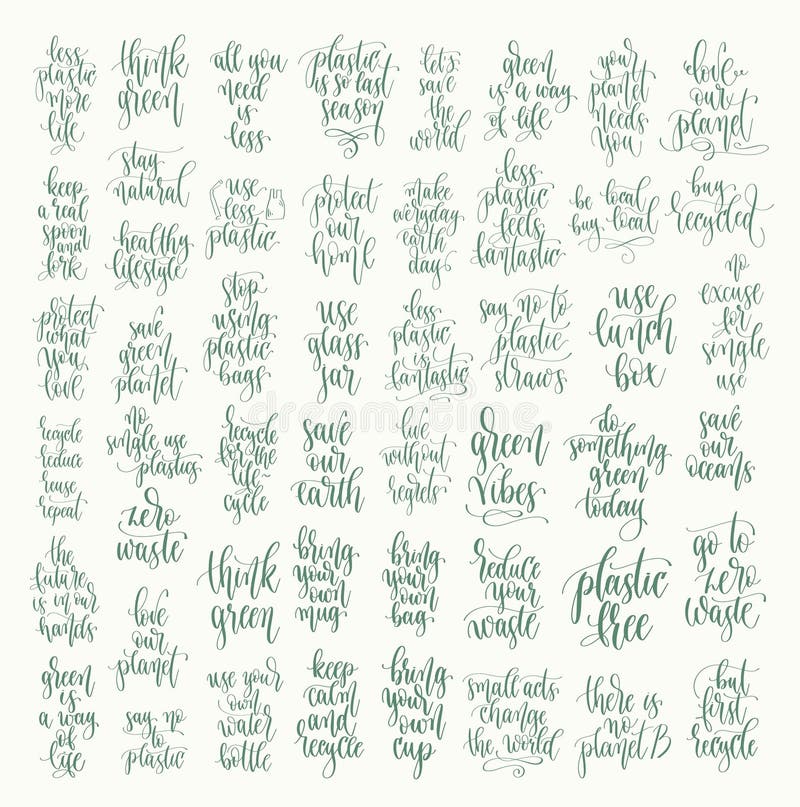 less
plastic
more
life
think
green
all you
need
is
less
plastic
is so last
season
let's
save
the
world
green
is a way
of life
your
planet
needs
you
love
our
planet
stay
natural
keep
a real
spoon
and
fork
healthy
lifestyle
use
less
plastic
protect
our
home
make
everyday
earth
day
less
plastic
feels
fantastic
be local
buy local
buy
recycled
protect
what
you
love
save
green
planet
stop
using
plastic
bags
use
glass
jar
less
plastic
is
fantastic
say no to
plastic
straws
use
lunch
box
no
excuse
for
single
use
recycle
reduce
reuse
repeat
no
single use
plastics
recycle
for the
life-
cycle
save
our
earth
live
without
regrets
green
vibes
do
something
green
today
save
our
oceans
zero
waste
the
future
is in our
hands
love
our
planet
think
green
bring
your
own
mug
bring
your
own
bag
reduce
your
waste
plastic
free
go to
zero
waste
green
is
a way
of
life
say no
to
plastic
use your
own
water
bottle
keep
calm
and
recycle
bring
your
own
cup
small acts
change
the world
there is
no
planet B
but
first
recycle
dreamstime